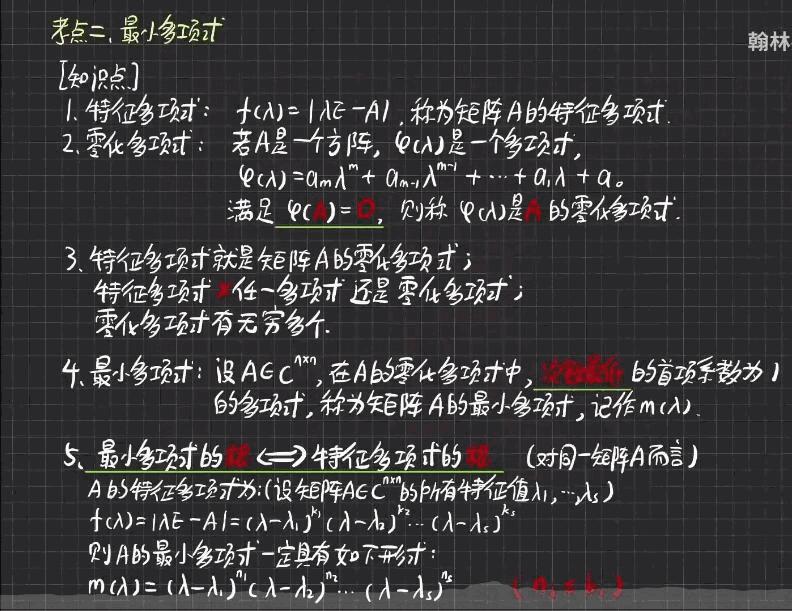 考点二、最小多项式
翰林
[知识点]
1. 特征多项式： f(λ)=|λE-A|, 称为矩阵A的特征多项式.
2. 零化多项式： 若A是一个方阵, φ(λ)是一个多项式,
φ(λ)=aₘλᵐ+aₘ₋₁λᵐ⁻¹+⋯+a₁λ+a₀
满足 φ(A)=O, 则称 φ(λ)是A的零化多项式.
3. 特征多项式就是矩阵A的零化多项式；
特征多项式×任一多项式还是零化多项式；
零化多项式有无穷多个.
4. 最小多项式：设A∈Cⁿˣⁿ, 在A的零化多项式中, 次数最低的首项系数为1
的多项式, 称为矩阵A的最小多项式, 记作m(λ).
5. 最小多项式的根⟺特征多项式的根 (对同一矩阵A而言)
A的特征多项式为:(设矩阵A∈Cⁿˣⁿ的所有特征值λ₁,…,λₛ)
f(λ)=|λE-A|=(λ-λ₁)^k₁(λ-λ₂)^k₂⋯(λ-λₛ)^kₛ
则A的最小多项式一定具有如下形式：
m(λ)=(λ-λ₁)^n₁(λ-λ₂)^n₂⋯(λ-λₛ)^nₛ (nᵢ≤kᵢ)